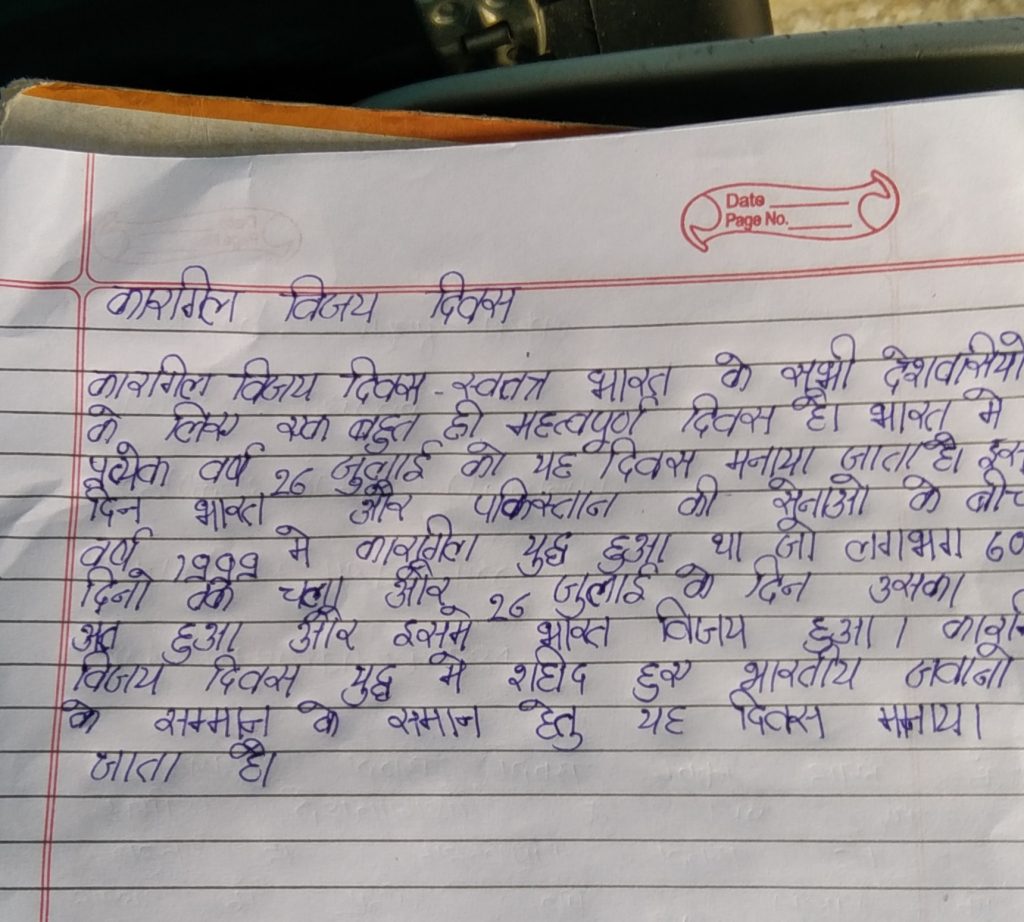 Date
Page No.
कारगिल विजय दिवस
कारगिल विजय दिवस - स्वतत्र भारत के सभी देशवासियो
के लिए एक बहुत ही महत्वपूर्ण दिवस है। भारत मे
प्रत्येक वर्ष 26 जुलाई को यह दिवस मनाया जाता है। इस
दिन भारत और पकिस्तान की सेनाओ के बीच
वर्ष 1999 मे कारगिल युद्ध हुआ था जो लगभग 60
दिनो चला और 26 जुलाई के दिन उसका
अंत हुआ और इसमे भारत विजय हुआ। कारगि
विजय दिवस युद्ध मे शहीद हुए भारतीय जवानो
के सम्मान के समान हेतु यह दिवस मनाया।
जाता है।